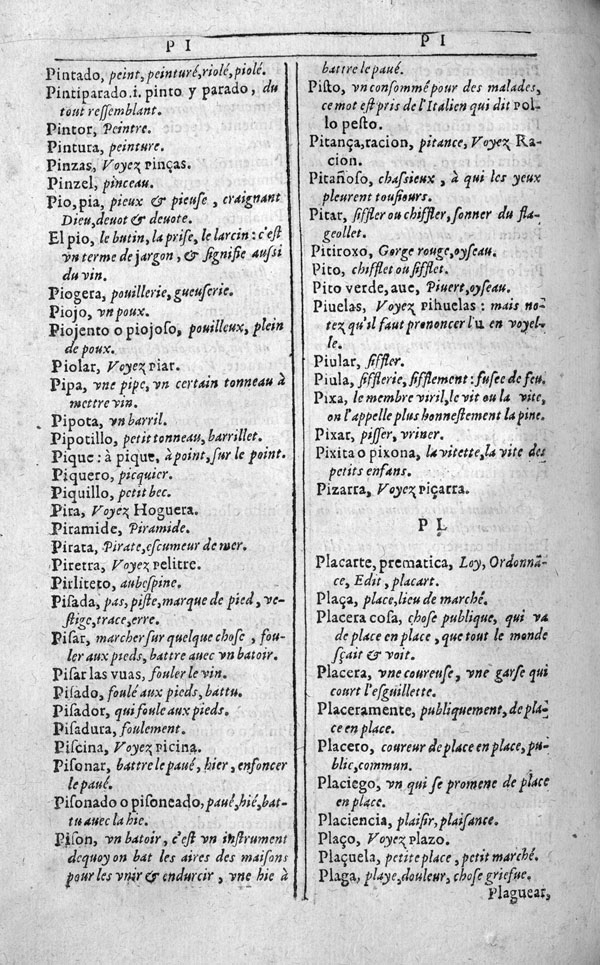 P I
P I
Pintado, peint, peinturé, riolé, piolé.
Pintiparado.i. pinto y parado, du
tout reſſemblant.
Pintor, Peintre.
Pintura, peinture.
Pinzas, Voyez Pinças.
Pinzel, pinceau.
Pio, pia, pieux & pieuse, craignant
Dieu, deuot & deuote.
El pio, le butin, la prise, le larcin: c'eſt
vn terme de jargon, & ſignifie auſſi
du vin.
Piogera, pouillerie, gueuſerie.
Piojo, vn poux.
Piojento o piojoſo, pouilleux, plein
de poux.
Piolar, Voyez Piar.
Pipa, vne pipe, vn certain tonneau à
mettre vin.
Pipota, vn barril.
Pipotillo, petit tonneau, barrillet.
Pique: à pique, à point, ſur le point.
Piquero, picquier.
Piquillo, petit bec.
Pira, Voyez Hoguera.
Piramide, Piramide.
Pirata, Pirate, eſcumeur de mer.
Piretra, Voyez Pelitre.
Pirliteto, aubeſpine.
Piſada, pas, piſte, marque de pied, ve-
ſtige, trace, erre.
Piſar, marcher ſur quelque choſe, fou-
ler aux pieds, battre auec vn batoir.
Piſar las vuas, fouler le vin.
Piſado, foulé aux pieds, battu.
Piſador, qui foule aux pieds.
Piſadura, foulement.
Piſcina, Voyez Picina.
Piſonar, battre le paué, hier, enfoncer
le paué.
Piſonado o piſoneado, paué, hié, bat-
tu auec la hie.
Piſon, vn batoir, c'eſt vn inſtrument
dequoy on bat les aires des maiſons
pour les vnir & endurcir, vne hie à
battre le paué.
Piſto, vn conſommé pour des malades,
ce mot eſt pris de l'Italien qui dit Pol-
lo peſto.
Pitança, racion, pitance, Voyez Ra-
cion.
Pitañoſo, chaſſieux, à qui les yeux
pleurent touſiours.
Pitar, ſiffler ou chiffler, ſonner du fla-
geollet.
Pitiroxo, Gorge rouge, oyſeau.
Pito, chifflet ou ſifflet.
Pito verde, aue, Piuert, oyſeau.
Piuelas, Voyez Pihuelas: mais no-
tez qu'il faut prononcer l'u en voyel-
le.
Piular, ſiffler.
Piula, ſifflerie, ſifflement: fuſee de feu.
Pixa, le membre viril, le vit ou la vite,
on l'appelle plus honneſtement la pine.
Pixar, piſſer, vriner.
Pixita o pixona, la vitette, la vite des
petits enfans.
Pizarra, Voyez Piçarra.
P L
Placarte, prematica, Loy, Ordonnã-
ce, Edit, placart.
Plaça, place, lieu de marché.
Placera coſa, choſe publique, qui va
de place en place, que tout le monde
ſçait & voit.
Placera, vne coureuſe, vne garſe qui
court l'eſguillette.
Placeramente, publiquement, de pla-
ce en place.
Placero, coureur de place en place, pu-
blic, commun.
Placiego, vn qui ſe promene de place
en place.
Placiencia, plaiſir, plaiſance.
Plaço, Voyez Plazo.
Plaçuela, petite place, petit marché.
Plaga, playe, douleur, choſe griefue.
Plaguear,